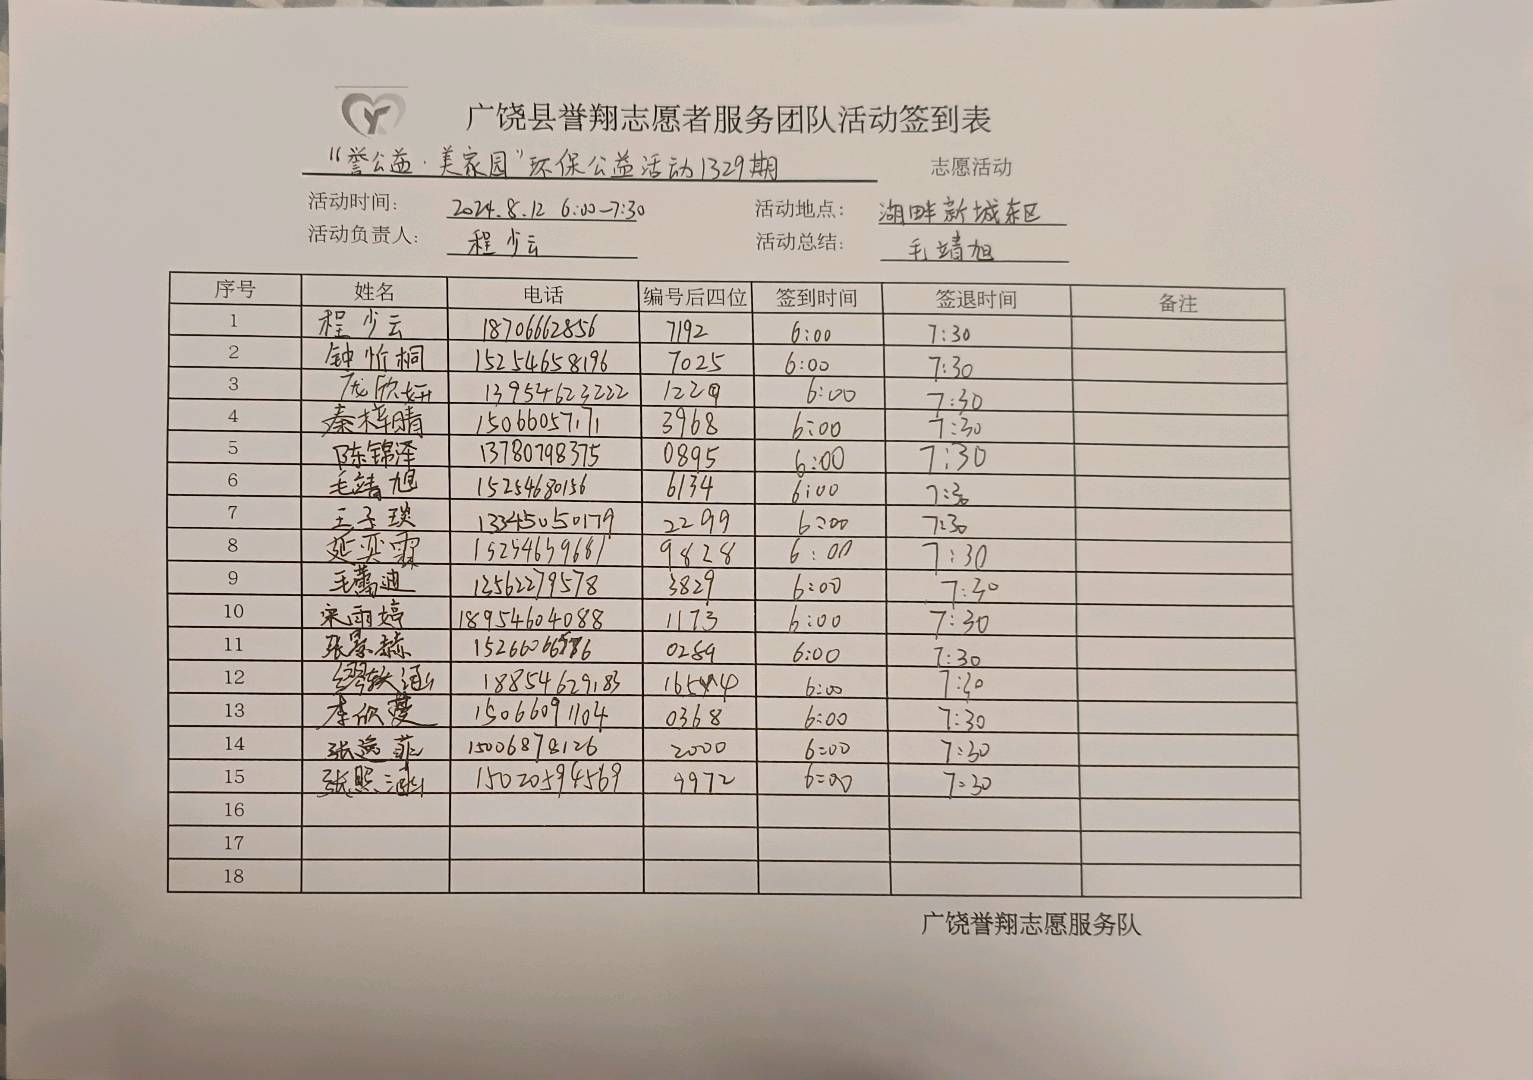 广饶县誉翔志愿者服务团队活动签到表
“誉公益·美家园”环保公益活动1329期 志愿活动
活动时间: 2024.8.12 6:00-7:30 活动地点: 湖畔新城东区
活动负责人: 程少云 活动总结: 毛靖旭
序号 姓名 电话 编号后四位 签到时间 签退时间 备注
1 程少云 18706662856 7192 6:00 7:30
2 钟忻桐 15254658196 7025 6:00 7:30
3 庞欣妍 13954623222 1229 6:00 7:30
4 秦梓晴 15066057171 3968 6:00 7:30
5 陈锦泽 13780798375 0895 6:00 7:30
6 毛靖旭 15254680156 6134 6:00 7:30
7 王子琰 13345050179 2299 6:00 7:30
8 延奕霖 15254659681 9828 6:00 7:30
9 毛蕾迪 13562279578 3829 6:00 7:30
10 宋雨婷 18954604088 1173 6:00 7:30
11 张景赫 0289 6:00 7:30
12 缪轶涵 18854629183 6:00 7:30
13 李欣蔓 15066091104 0368 6:00 7:30
14 张逸菲 15006878126 2000 6:00 7:30
15 张熙涵 15020594569 9972 6:00 7:30
16
17
18
广饶誉翔志愿服务队